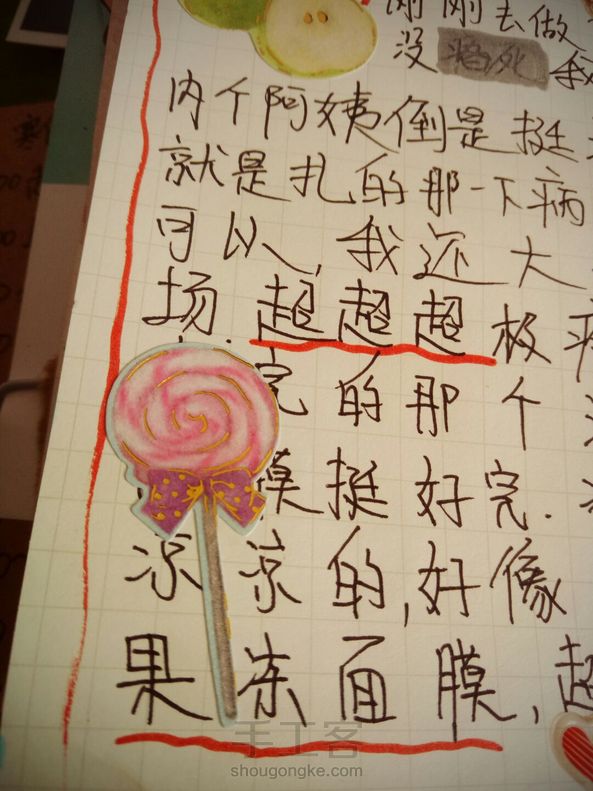 刚刚去做
没 我
内个阿姨倒是挺
就是扎的那一下病
可以，我还大
场.超超超极疼
完的那个
膜挺好完.
凉凉的,好像
果冻面膜,超
手工客
shougongke.com